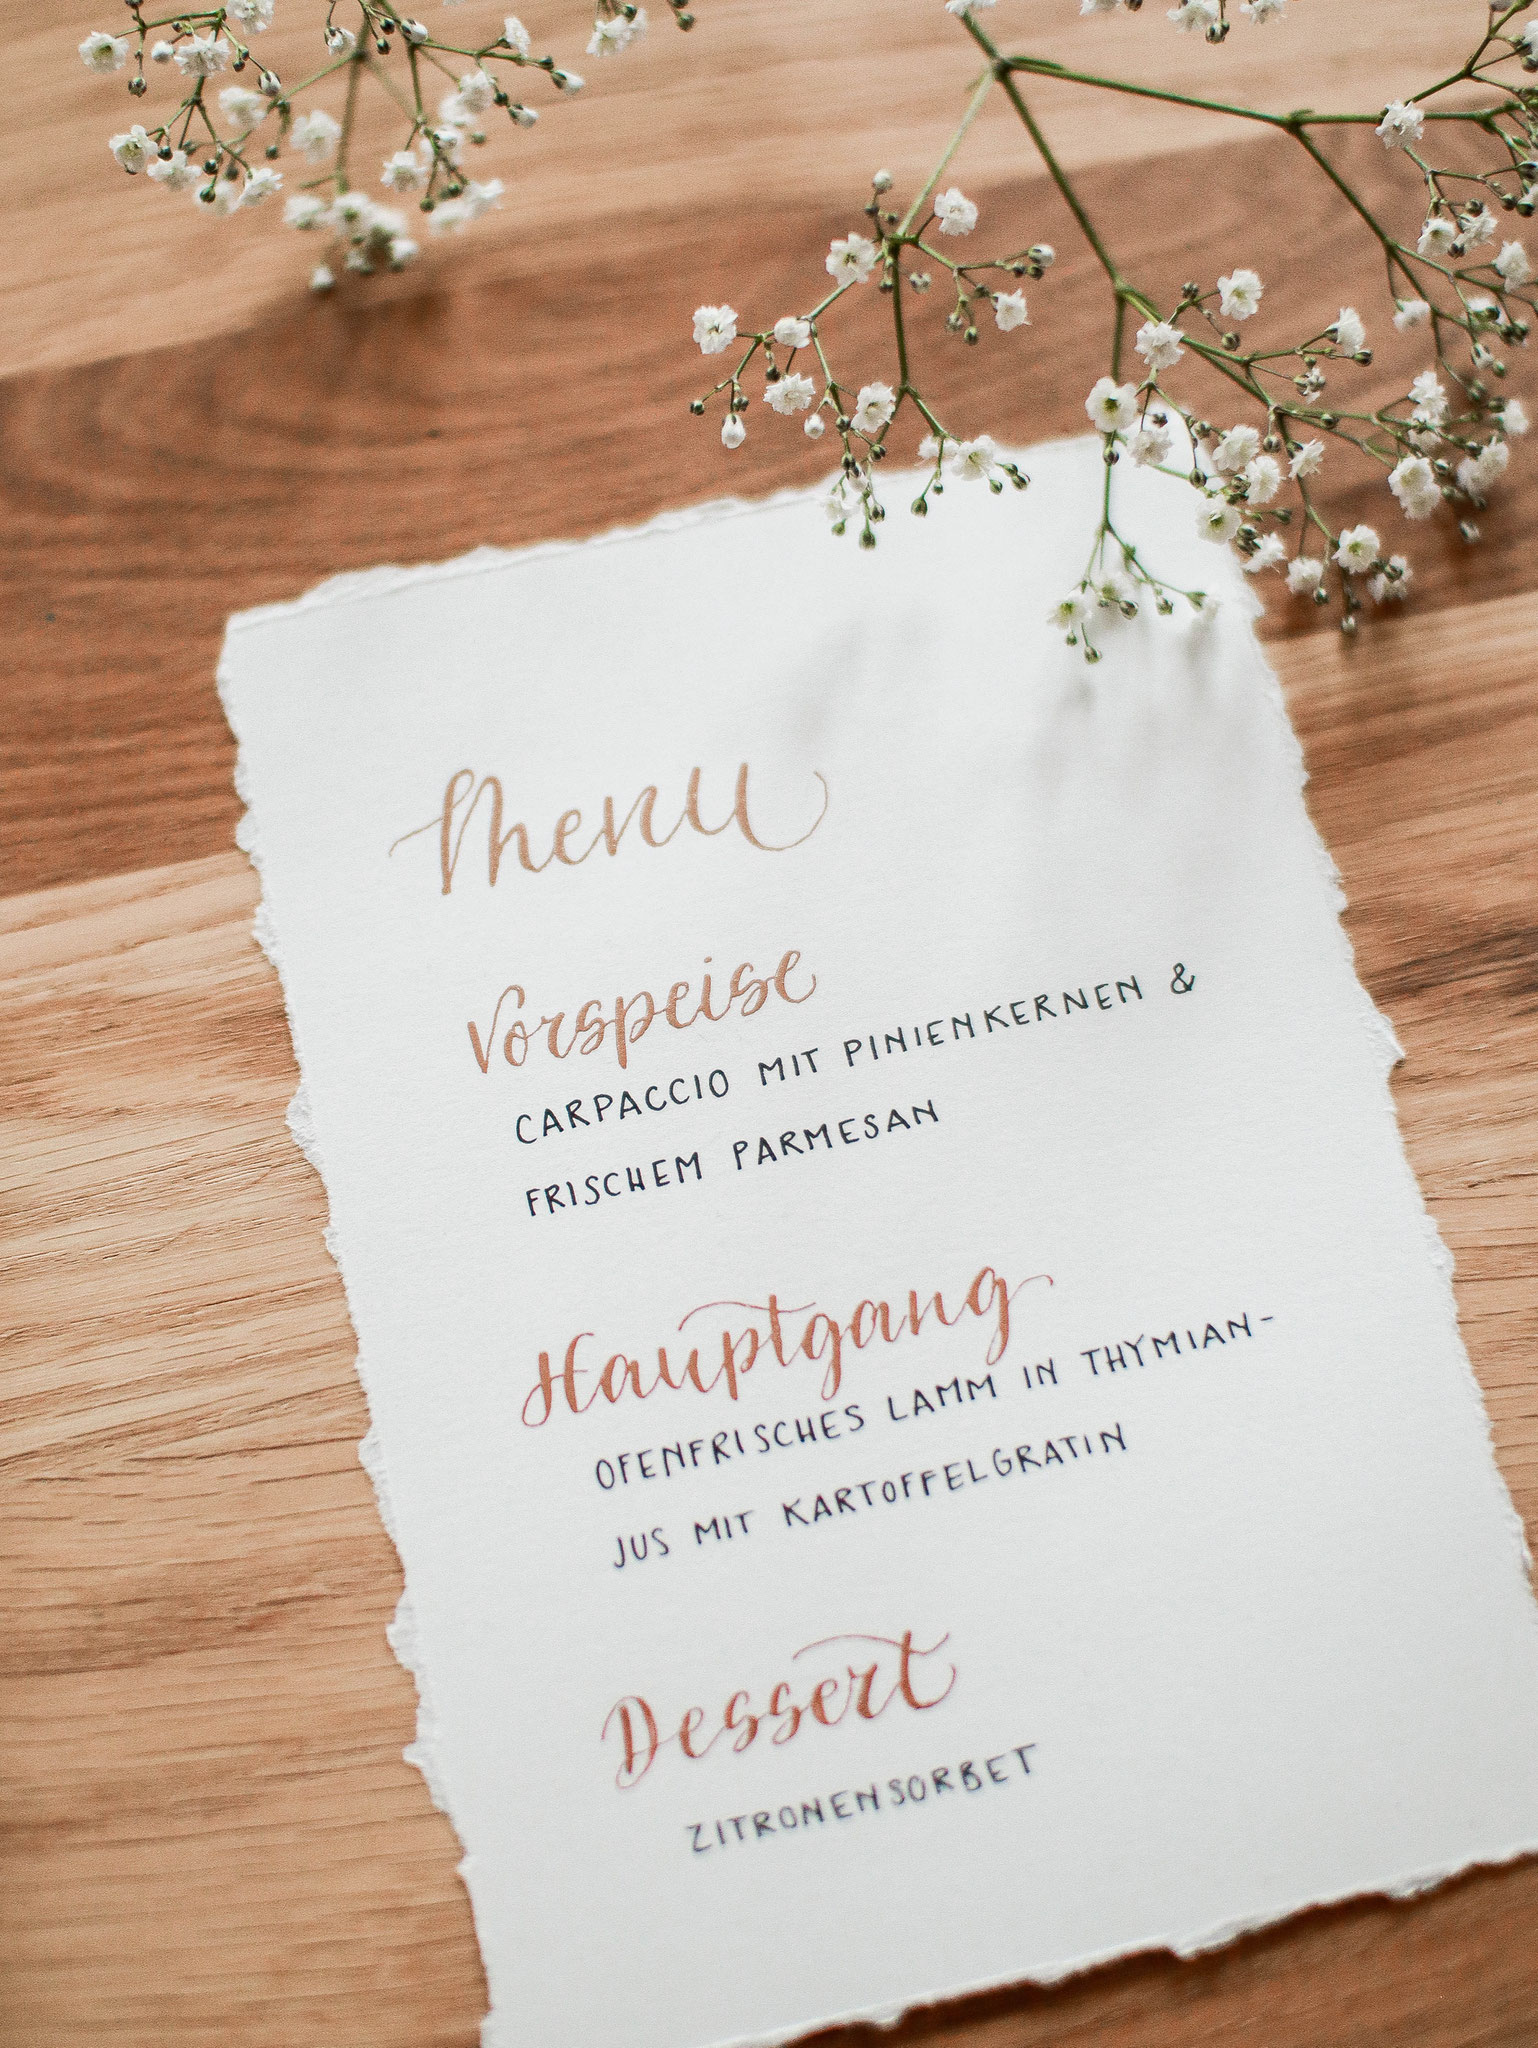 Menu
Vorspeise
CARPACCIO MIT PINIENKERNEN &
FRISCHEM PARMESAN
Hauptgang
OFENFRISCHES LAMM IN THYMIAN-
JUS MIT KARTOFFELGRATIN
Dessert
ZITRONENSORBET